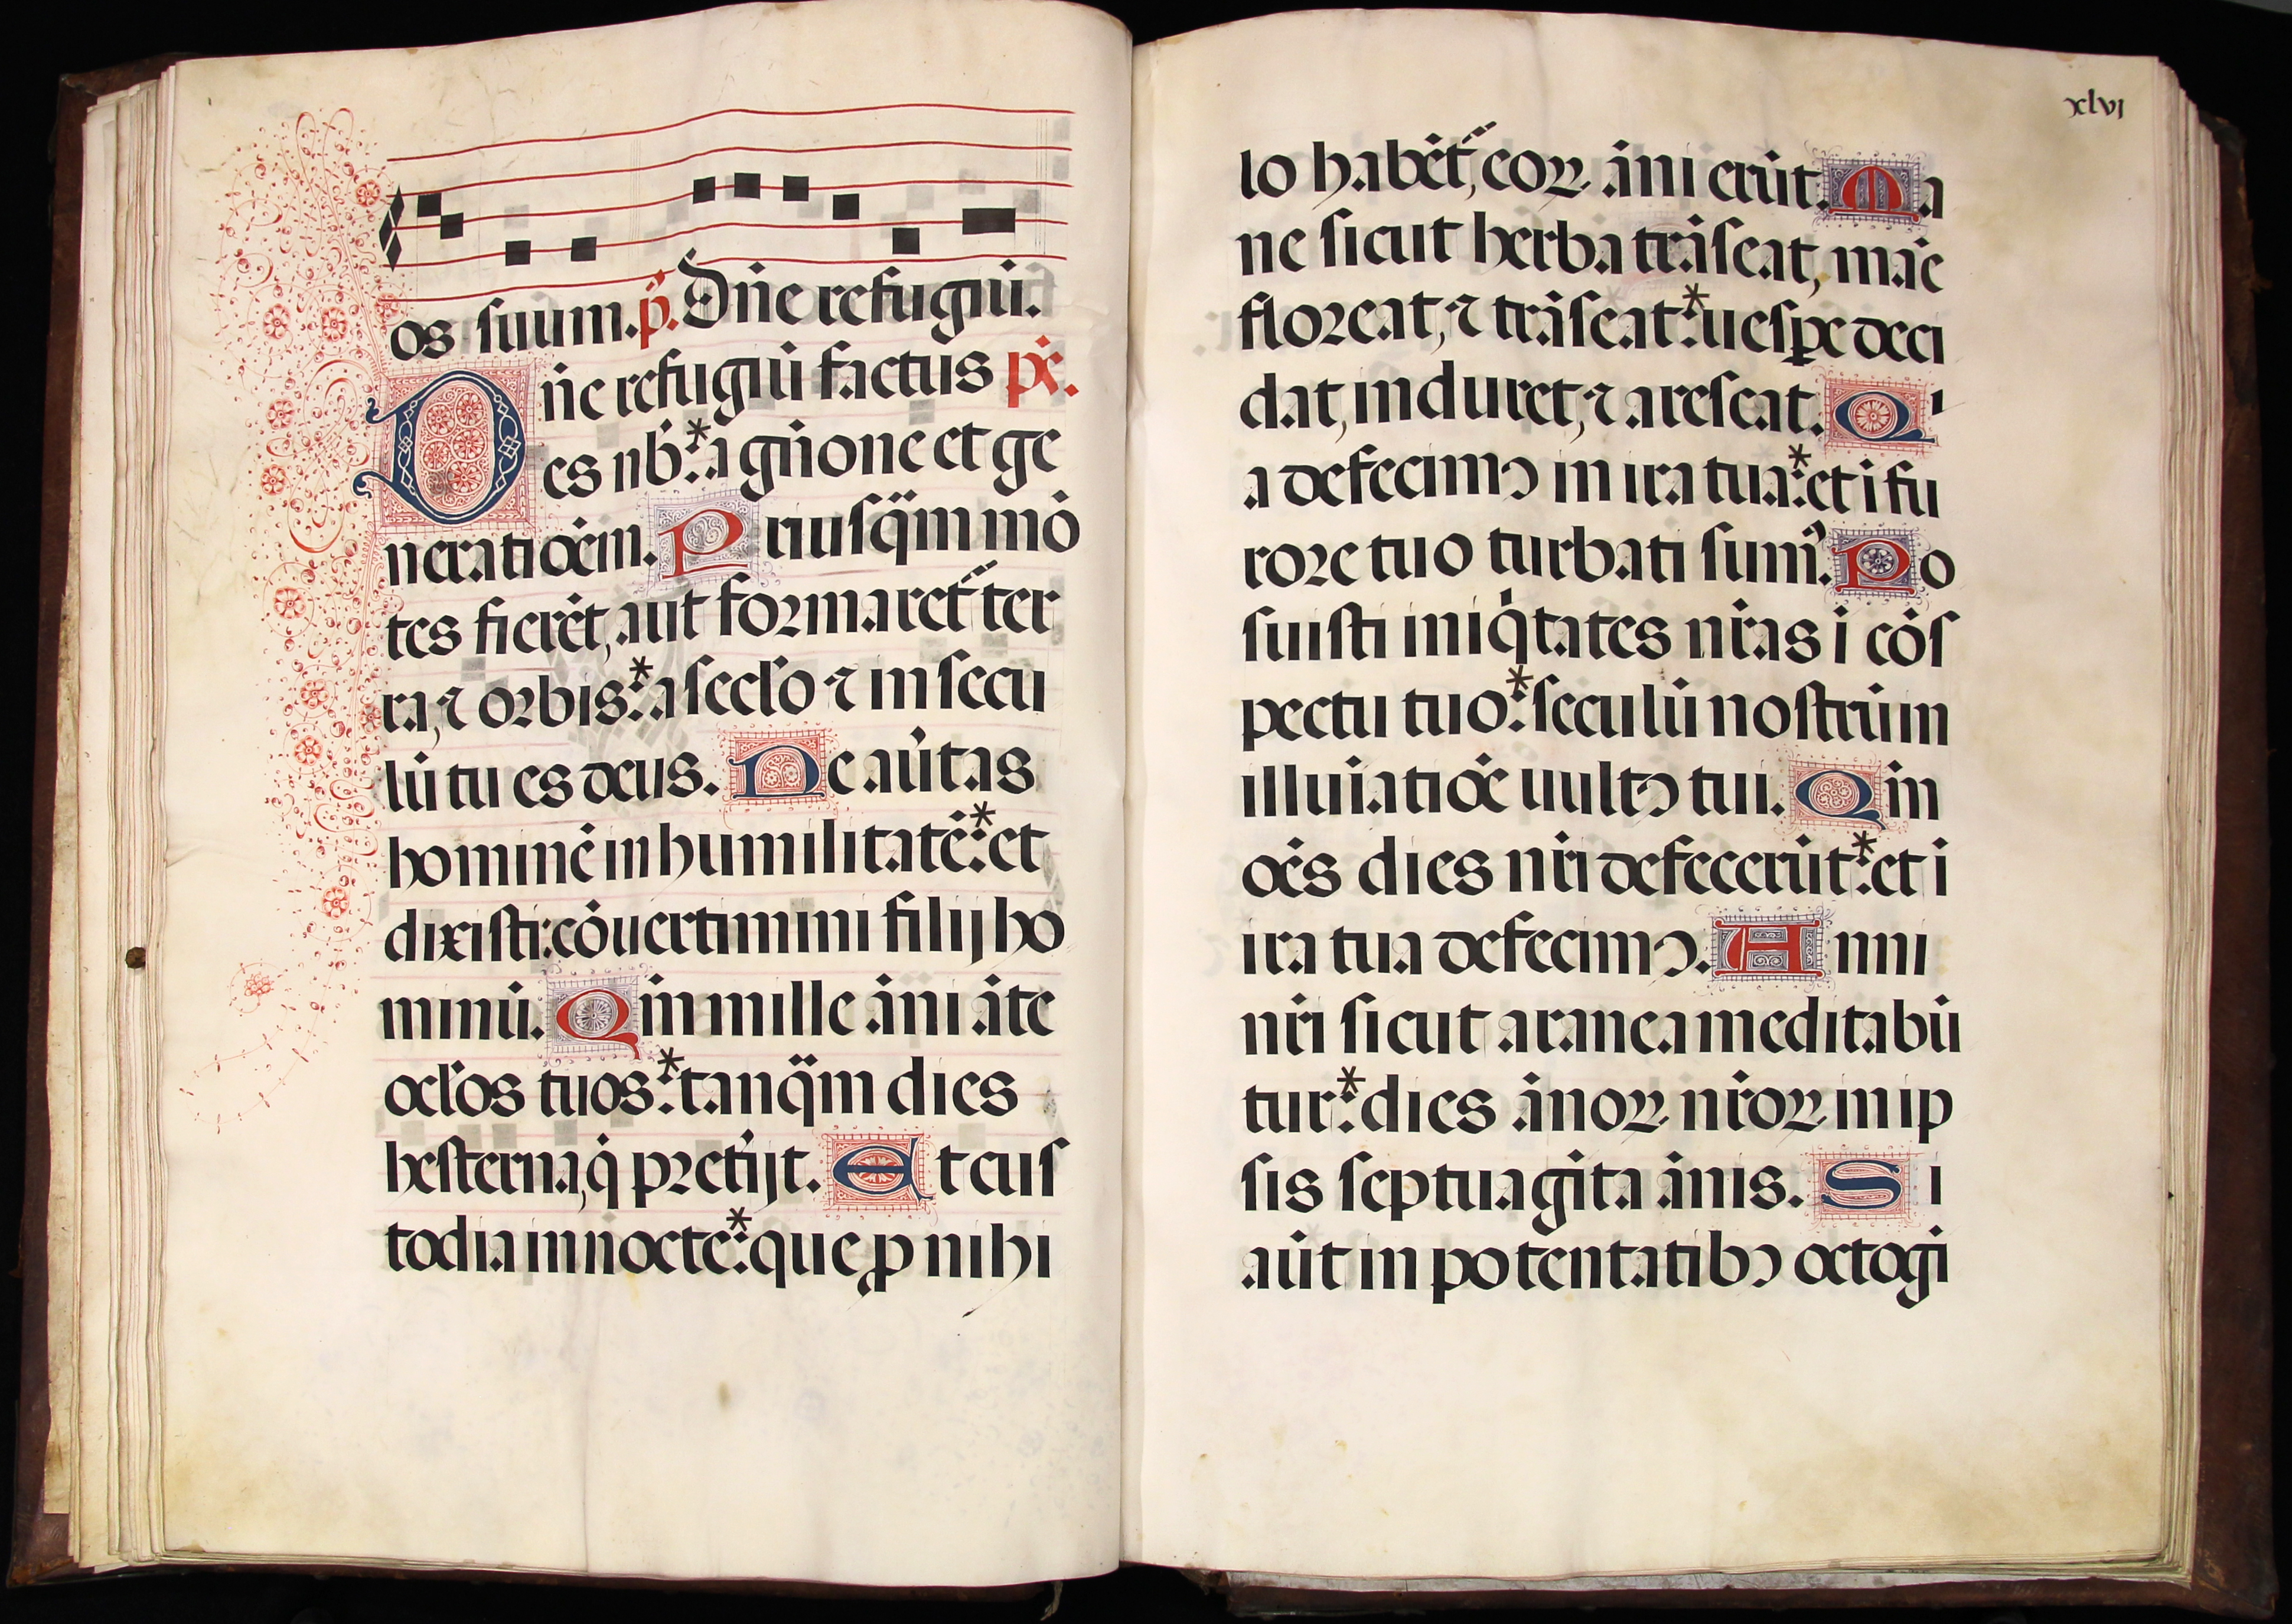 os suum. p̄. Dn̄e refugiū.
Dn̄e refugiū factus pſ̄.
es nob̄:* a gn̄one et ge
neratiōem. Priusq̄m mō
tes fierēt, aut formaret᷑ ter
ra, ⁊ orbis:* a seclo ⁊ in secu
lū tu es deus. Ne au̇tas
hominē in humilitatē:* et
dixisti: cōuertimini filij ho
minū. Qm̄ mille āni āte
oclos tuos:* tanq̄m dies
hesterna, q̇ preṫijt. Et cus
todia in nocte:* que ꝓ nihi
xlvj
lo habēt᷑, eoꝝ āni erūt. Ma
ne sicut herba trāseat, māe
floreat, ⁊ trāseat:* uesꝑe deci
dat, induret, ⁊ arescat. Qi
a defecimꝰ in ira tua:* et ī fu
rore tuo turbati sumꝰ. Po
suisti iniq̇tates nr̄as ī cōs
pectu tuo:* seculū nostrūm
illuīatiōe uultꝰ tui. Qm̄
oēs dies nr̄i defecerūt:* et ī
ira tua defecimꝰ. Anni
nr̄i sicut aranea meditabū
tur:* dies ānoꝝ nr̄oꝝ in ip
sis septuagīta ānis. Si
aūt in potentatibꝰ octogī